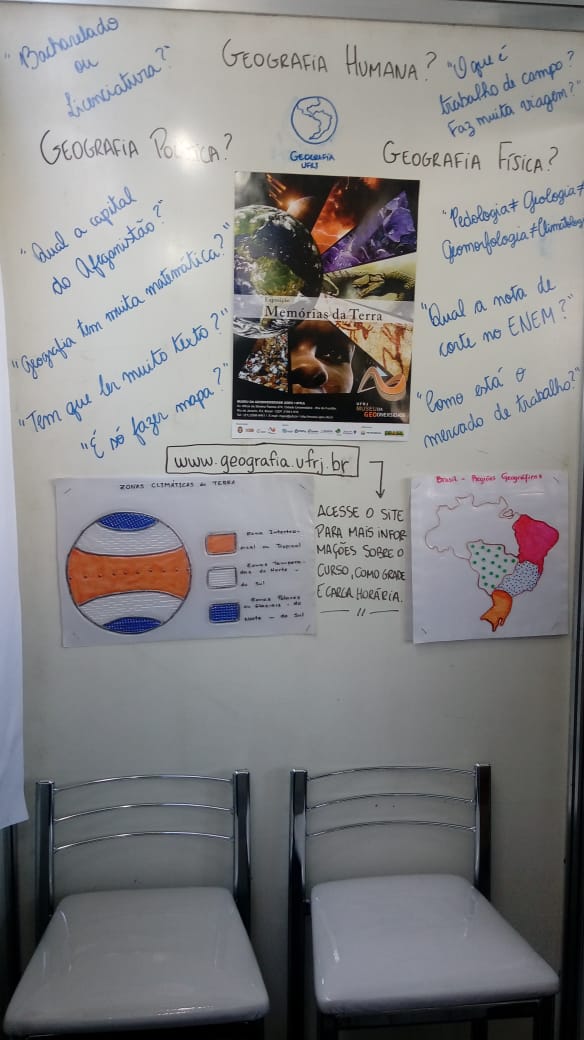 "Bacharelado
ou
Licenciatura?"
GEOGRAFIA HUMANA?
"O que é
trabalho de campo?
Faz muita viagem?"
GEOGRAFIA
UFRJ
GEOGRAFIA POLÍTICA?
GEOGRAFIA FÍSICA?
"Qual a capital
do Afeganistão?"
"Geografia tem muita matemática?"
"Tem que ler muito texto?"
"É só fazer mapa?"
"Pedologia ≠ Geologia ≠
Geomorfologia ≠ Climatologia
"Qual a nota de
corte no ENEM?"
"Como está o
mercado de trabalho?"
Exposição
Memórias da Terra
UFRJ
MUSEU DA
GEODIVERSIDADE
MUSEU DA GEODIVERSIDADE (IGEO / UFRJ)
BRASIL
www.geografia.ufrj.br
ACESSE O SITE
PARA MAIS INFOR
MAÇÕES SOBRE O
CURSO, COMO GRADE
E CARGA HORÁRIA.
ZONAS CLIMÁTICAS da TERRA
Zona Intertro-
pical ou Tropical
Zonas Tempera-
das do Norte -
do Sul
Zonas Polares
ou Glaciais - do
Norte - do Sul
Brasil - Regiões Geográficas